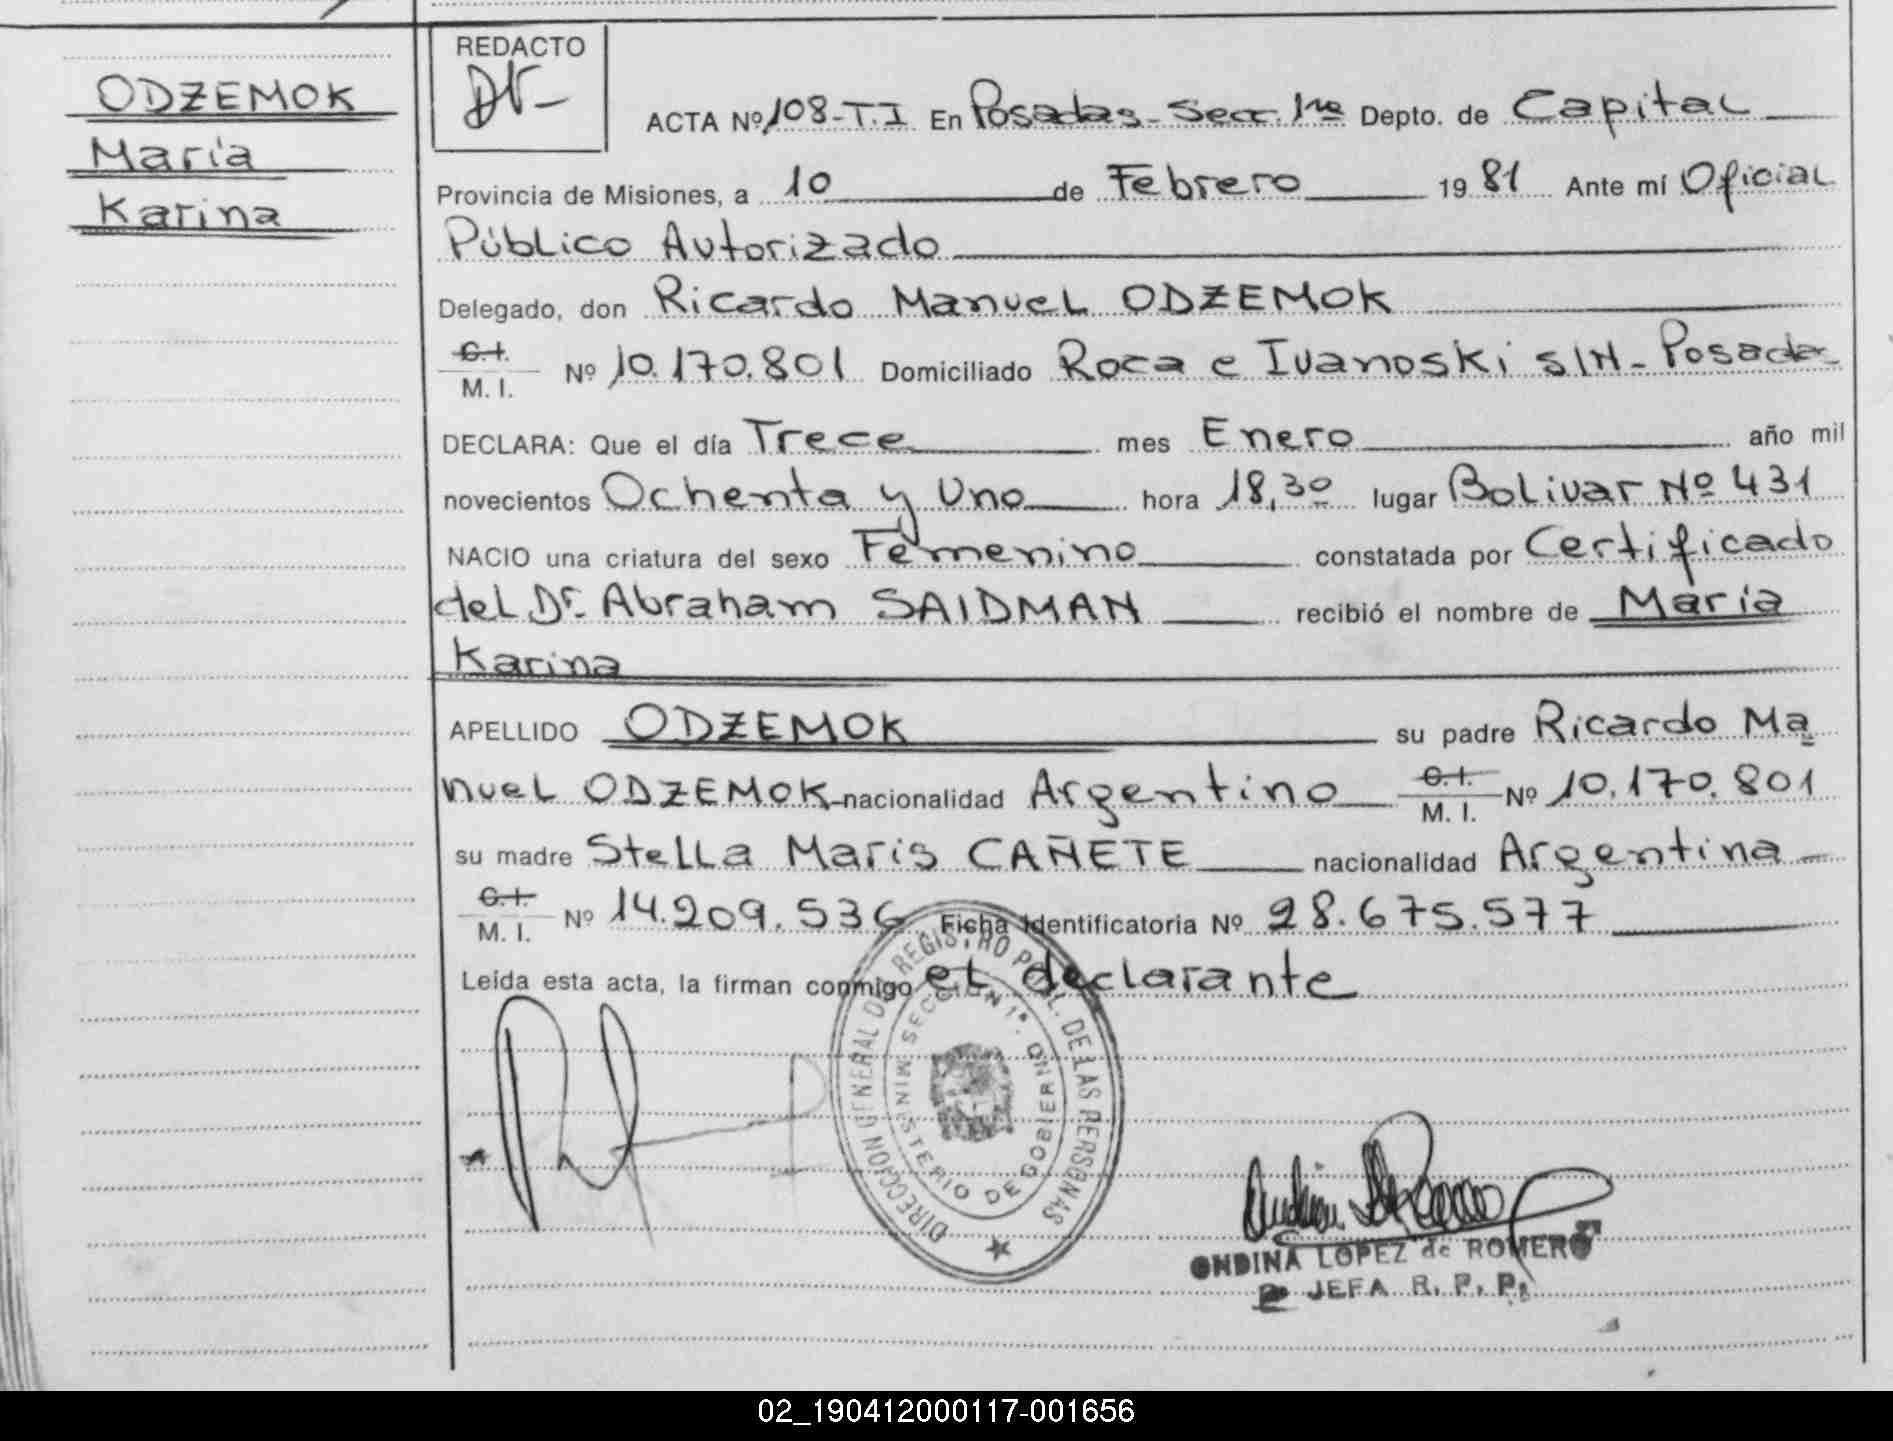 ODZEMOK
María
Karina
REDACTO
ACTA Nº 108-T.I En Posadas-Secc. 1ra Depto. de Capital
Provincia de Misiones, a 10 de Febrero 1981 Ante mí Oficial
Público Autorizado
Delegado, don Ricardo Manuel ODZEMOK
C.I. M. I. Nº 10.170.801 Domiciliado Roca e Ivanoski S/N-Posadas
DECLARA: Que el día Trece mes Enero año mil
novecientos Ochenta y Uno hora 18,30 lugar Bolivar Nº 431
NACIO una criatura del sexo Femenino constatada por Certificado
del Dr. Abraham SAIDMAN recibió el nombre de María
Karina
APELLIDO ODZEMOK su padre Ricardo Ma
nuel ODZEMOK nacionalidad Argentino C.I. M. I. Nº 10.170.801
su madre Stella Maris CAÑETE nacionalidad Argentina
C.I. M. I. Nº 14.209.536 Ficha Identificatoria Nº 28.675.577
Leída esta acta, la firman conmigo el declarante
DIRECCION GENERAL DEL REGISTRO PCIAL. DE LAS PERSONAS
SECCION 1ª.
MINISTERIO DE GOBIERNO
ONDINA LOPEZ de ROMERO
JEFA R. P. P.
02_190412000117-001656